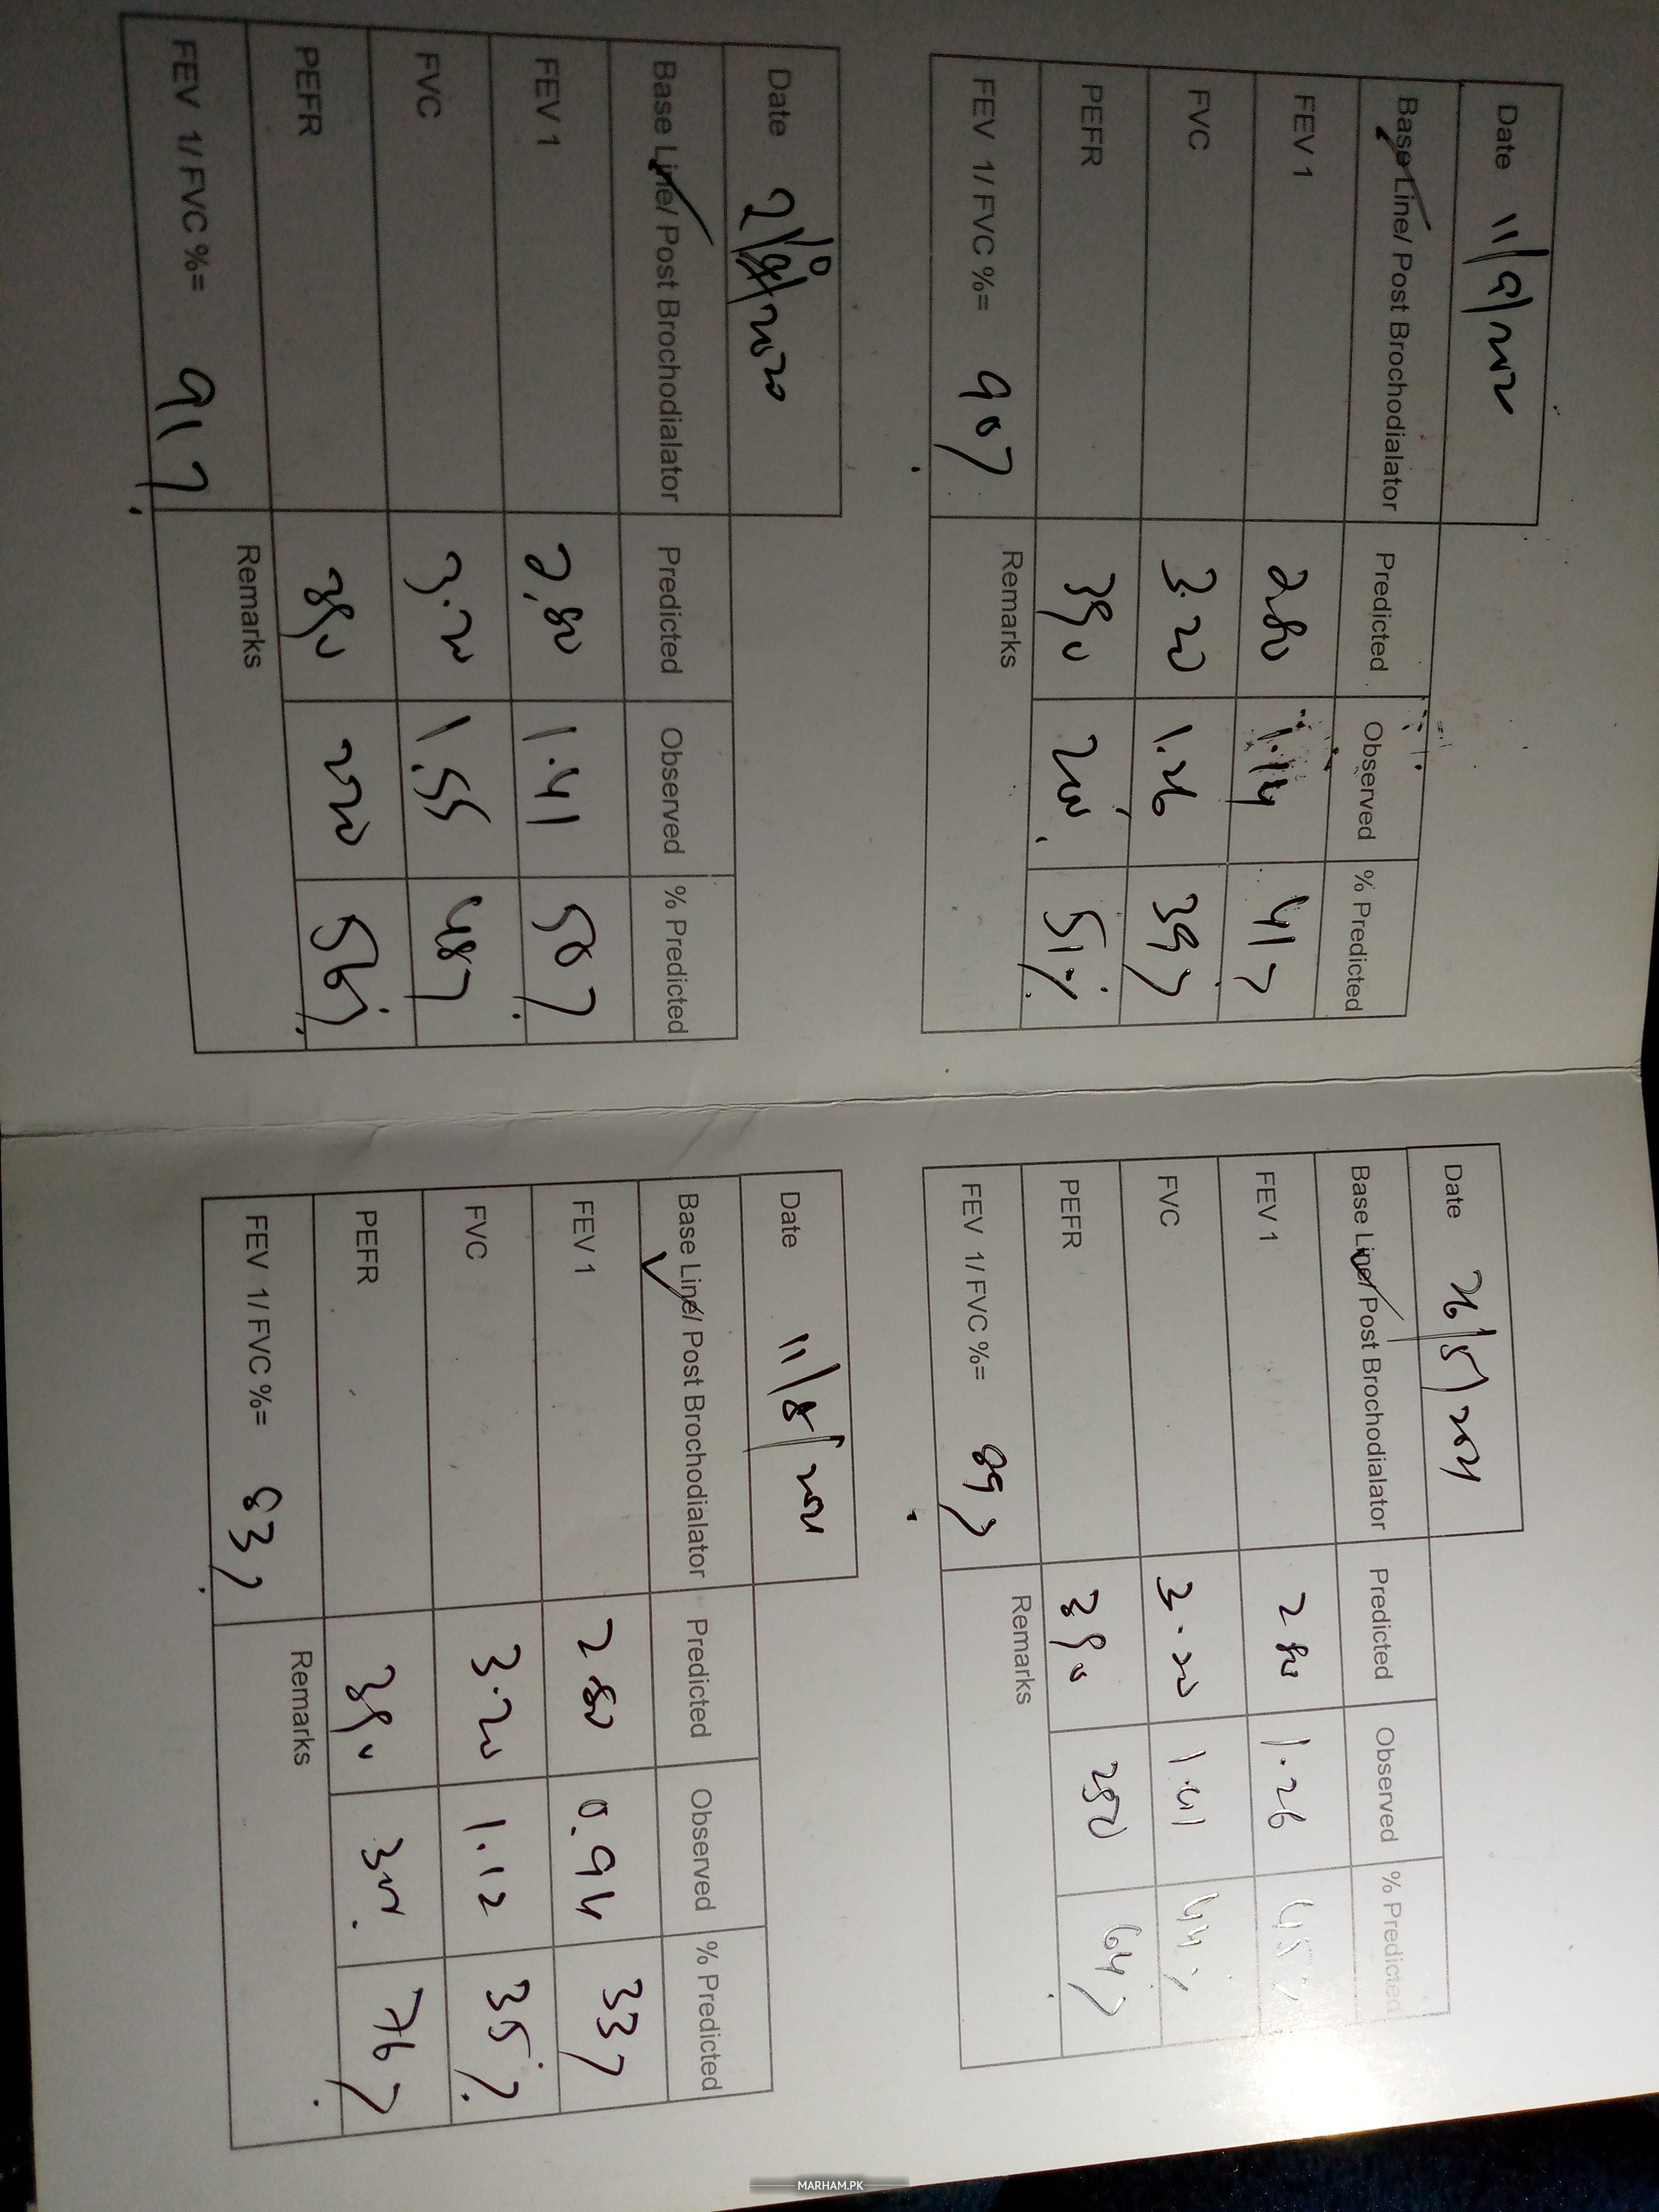 Date 11/9/2020
Base Line/ Post Brochodialator Predicted Observed % Predicted
FEV 1 280 1.14 41%
FVC 3.20 1.26 39%
PEFR 390 200 51%
FEV 1/ FVC %= 90% Remarks
Date 21/10/2020
Base Line/ Post Brochodialator Predicted Observed % Predicted
FEV 1 2.80 1.41 50%
FVC 3.20 1.55 48%
PEFR 390 220 56%
FEV 1/ FVC %= 91% Remarks
Date 26/5/2021
Base Line/ Post Brochodialator Predicted Observed % Predicted
FEV 1 280 1.26 45%
FVC 3.20 1.41 44%
PEFR 390 250 64%
FEV 1/ FVC %= 89% Remarks
Date 11/8/2021
Base Line/ Post Brochodialator Predicted Observed % Predicted
FEV 1 280 0.94 33%
FVC 3.20 1.12 35%
PEFR 390 300 76%
FEV 1/ FVC %= 83% Remarks
MARHAM.PK